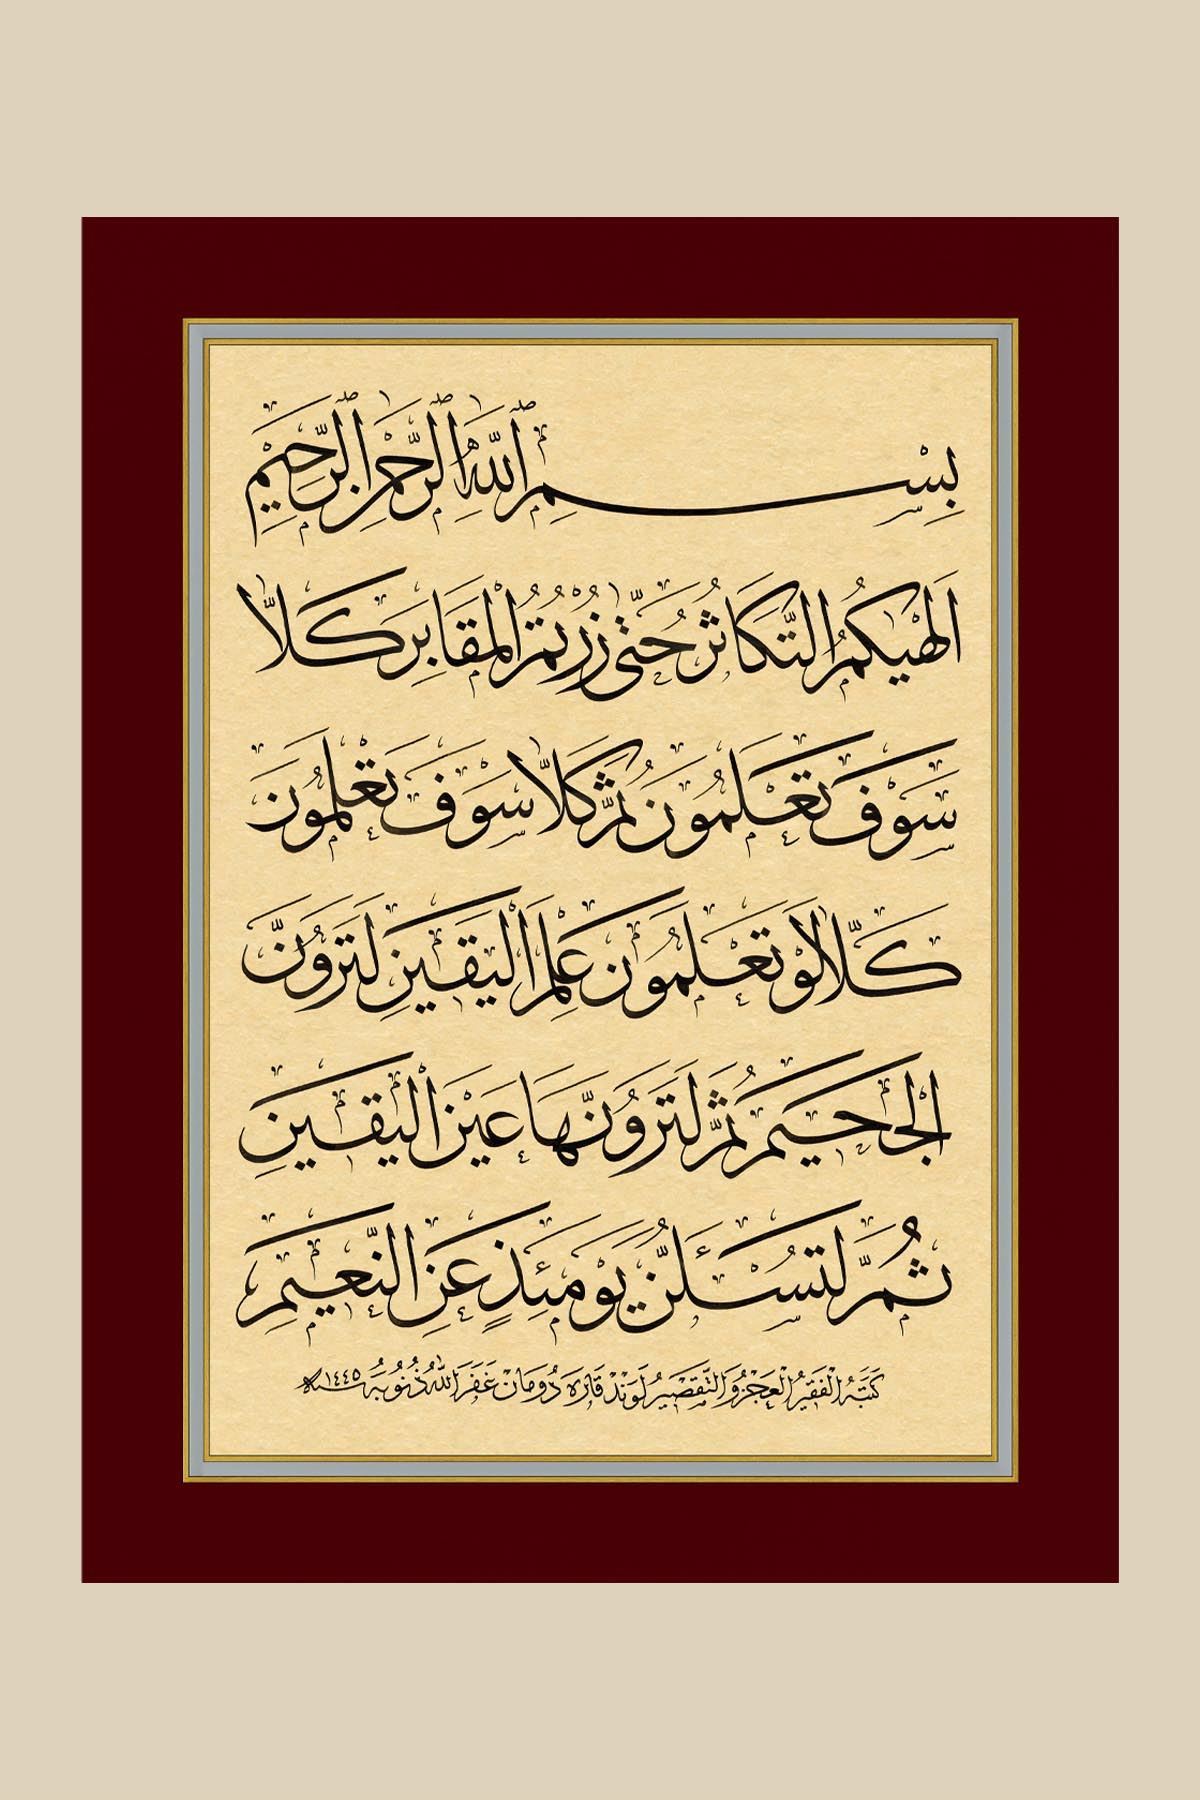 بِسْمِ اللّٰهِ الرَّحْمٰنِ الرَّحِيمِ
اَلْهٰيكُمُ التَّكَاثُرُ حَتّٰى زُرْتُمُ الْمَقَابِرَ كَلَّا
سَوْفَ تَعْلَمُونَ ثُمَّ كَلَّا سَوْفَ تَعْلَمُونَ
كَلَّا لَوْ تَعْلَمُونَ عِلْمَ الْيَقِينِ لَتَرَوُنَّ
الْجَحِيمَ ثُمَّ لَتَرَوُنَّهَا عَيْنَ الْيَقِينِ
ثُمَّ لَتُسْـَٔلُنَّ يَوْمَئِذٍ عَنِ النَّعِيمِ
كَتَبَهُ الْفَقِيرُ الْعَجْزِ وَالتَّقْصِيرُ لَوَنْدْ قَارَه دُومَانْ غَفَرَ اللّٰهُ ذُنُوبَهُ سنة ١٤٤٥